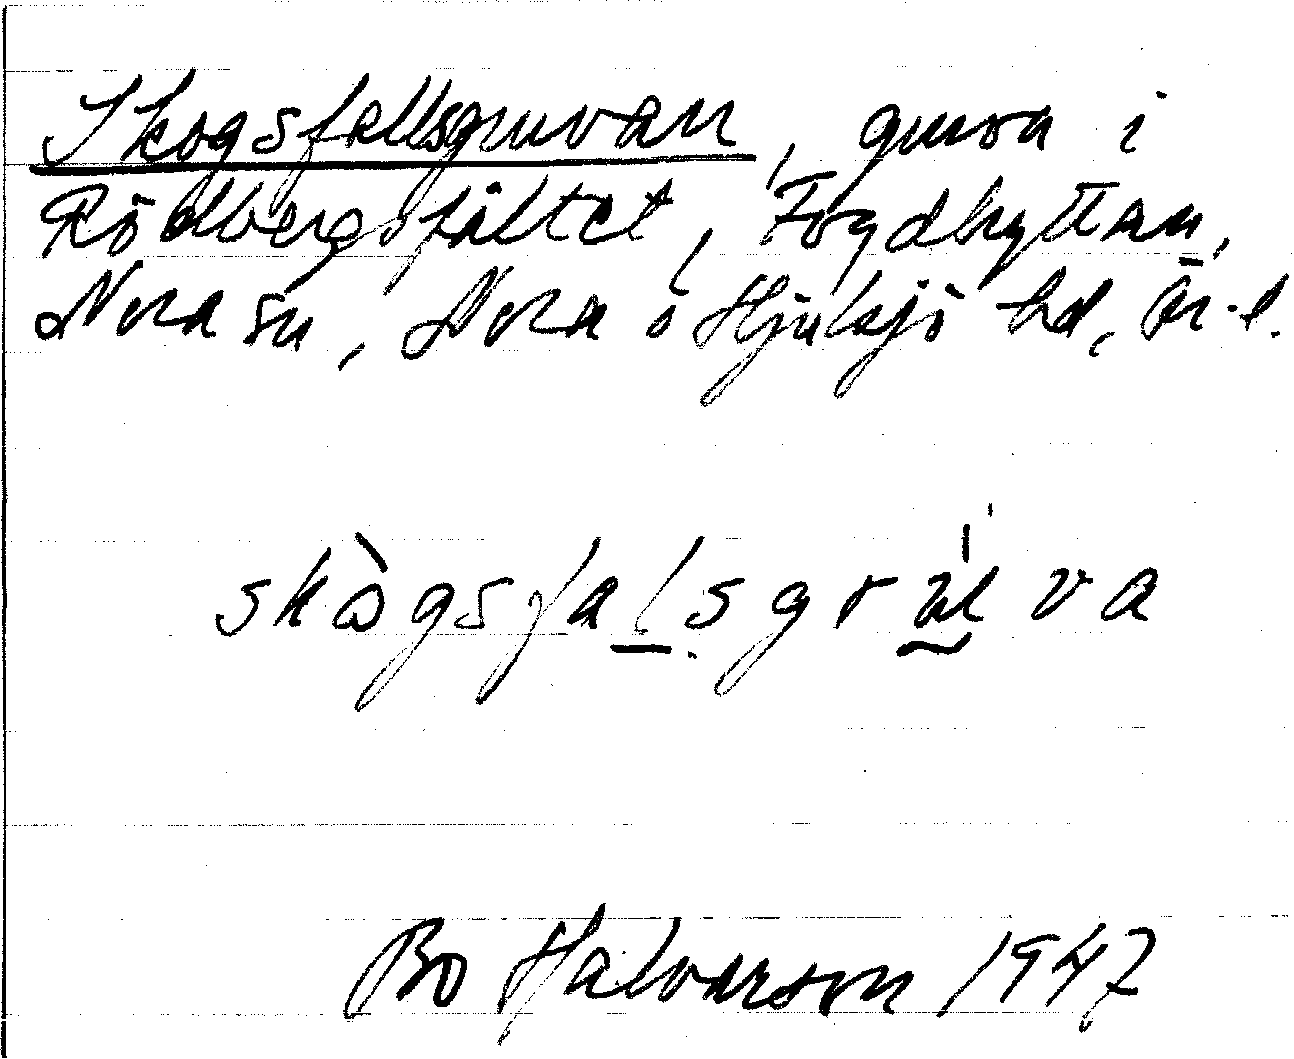 Skogsfallsgruvan, gruva i
Rödbergsfältet, Fogdhyttan,
Nora sn, Nora o Hjulsjö hd, Ör. l.
skògsfalsgrúva
Bo Halvarson 1947